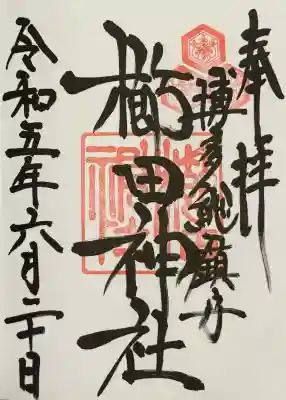 奉拝
博多総鎮守
櫛田神社
令和五年六月二十日